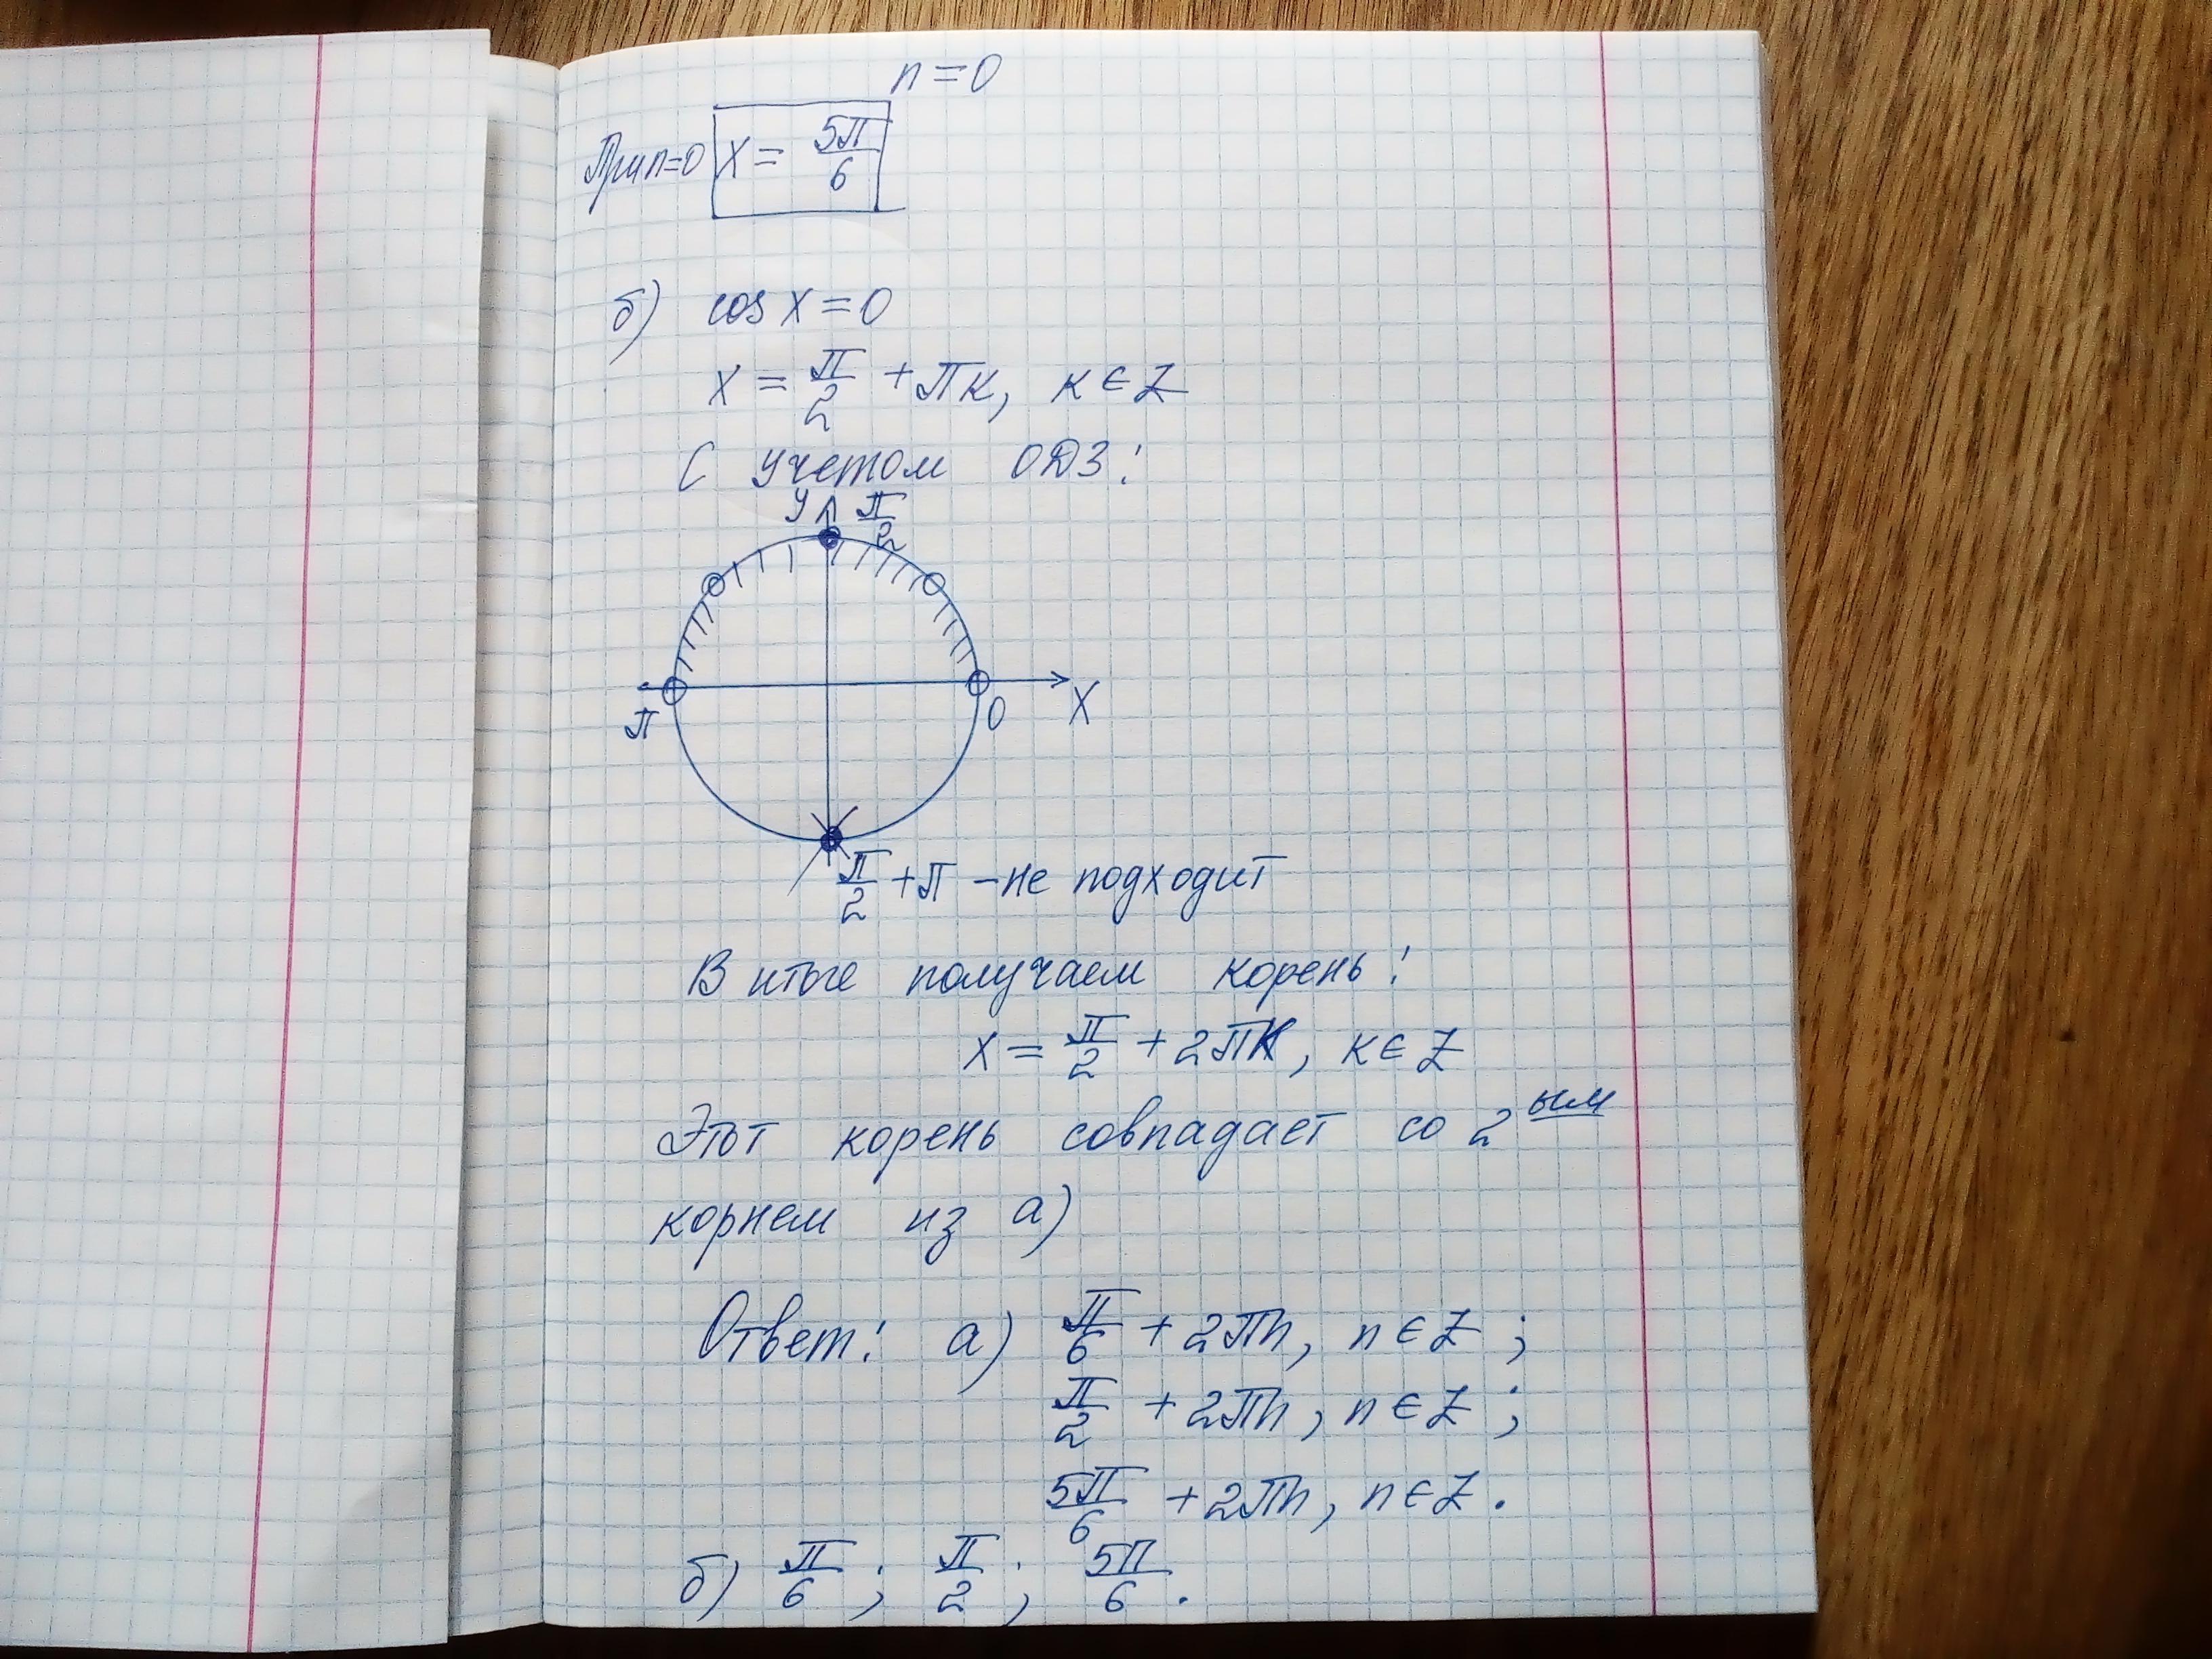 n = 0
При n=0 x = 5π/6
б) cos x = 0
x = π/2 + πк, к ∈ Z
С учетом ОДЗ:
y π/2
π 0 x
π/2 + π - не подходит
В итоге получаем корень:
x = π/2 + 2πк, к ∈ Z
Этот корень совпадает со 2ым
корнем из а)
Ответ: а) π/6 + 2πn, n ∈ Z ;
π/2 + 2πn, n ∈ Z ;
5π/6 + 2πn, n ∈ Z .
б) π/6 ; π/2 ; 5π/6 .